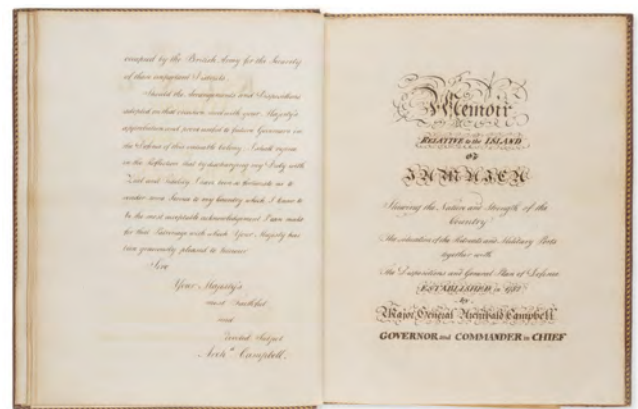 occupied by the British Army for the Security
of these important Districts.
Should the Arrangements and Dispositions
adopted on that occasion meet with your Majesty's
approbation and prove useful to future Governors in
the Defence of this valuable Colony I shall rejoice
in the Reflection that by discharging my Duty with
Zeal and Fidelity I have been so fortunate as to
render some Service to my Country which I know to
be the most acceptable acknowledgement I can make
for that Patronage with which Your Majesty has
been graciously pleased to honour
Sire
Your Majesty's
most Faithful
and
Devoted Subject
Archd. Campbell.
Memoir
RELATIVE to the ISLAND
OF
JAMAICA
Shewing the Nature and Strength of the
Country
The situation of the Harbours and Military Posts
together with
the Dispositions and General Plan of Defence
ESTABLISHED in 1782
by
Major General Archibald Campbell
GOVERNOR and COMMANDER in CHIEF